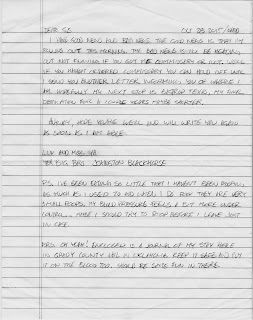 DEAR SIS OCT 28 2015
I HAVE GOOD NEWS AND BAD NEWS. THE GOOD NEWS IS THAT I'M
ROLLING OUT THIS MORNING. THE BAD NEWS IS I'LL BE HEADIN
OUT NOT KNOWING IF YOU GOT ME COMMISSARY OR NOT. WELL
IF YOU HAVEN'T ORDERED COMMISSARY YOU CAN HOLD OFF UNTIL
I SEND YOU ANOTHER LETTER INFORMING YOU OF WHERE I
AM. HOPEFULLY MY NEXT STOP IS TEXAS, MY FINAL
DESTINATION FOR A COUPLE YEARS MAYBE SHORTER.
ANYWAY, HOPE YOU'RE WELL AND WILL WRITE YOU AGAIN
AS SOON AS I AM ABLE.
LOVE AND
YER BIG BRO JOHNSTON BLACKHORSE
P.S. I'VE BEEN EATING SO LITTLE THAT I HAVEN'T BEEN POOPIN,
AS MUCH AS I USED TO AND WHEN I DO POOP THEY ARE VERY
SMALL POOPS. MY BLOOD PRESSURE FEELS A BIT MORE UNDER
CONTROL. MAYBE I SHOULD TRY TO POOP BEFORE I LEAVE JUST
IN CASE.
PPS. OH YEAH! ENCLOSED IS A JOURNAL OF MY STAY HERE
IN GRADY COUNTY JAIL IN OKLAHOMA. KEEP IT SAFE AND PUT
IT ON THE BLOG TOO. SHOULD BE SOME FUN IN THERE.